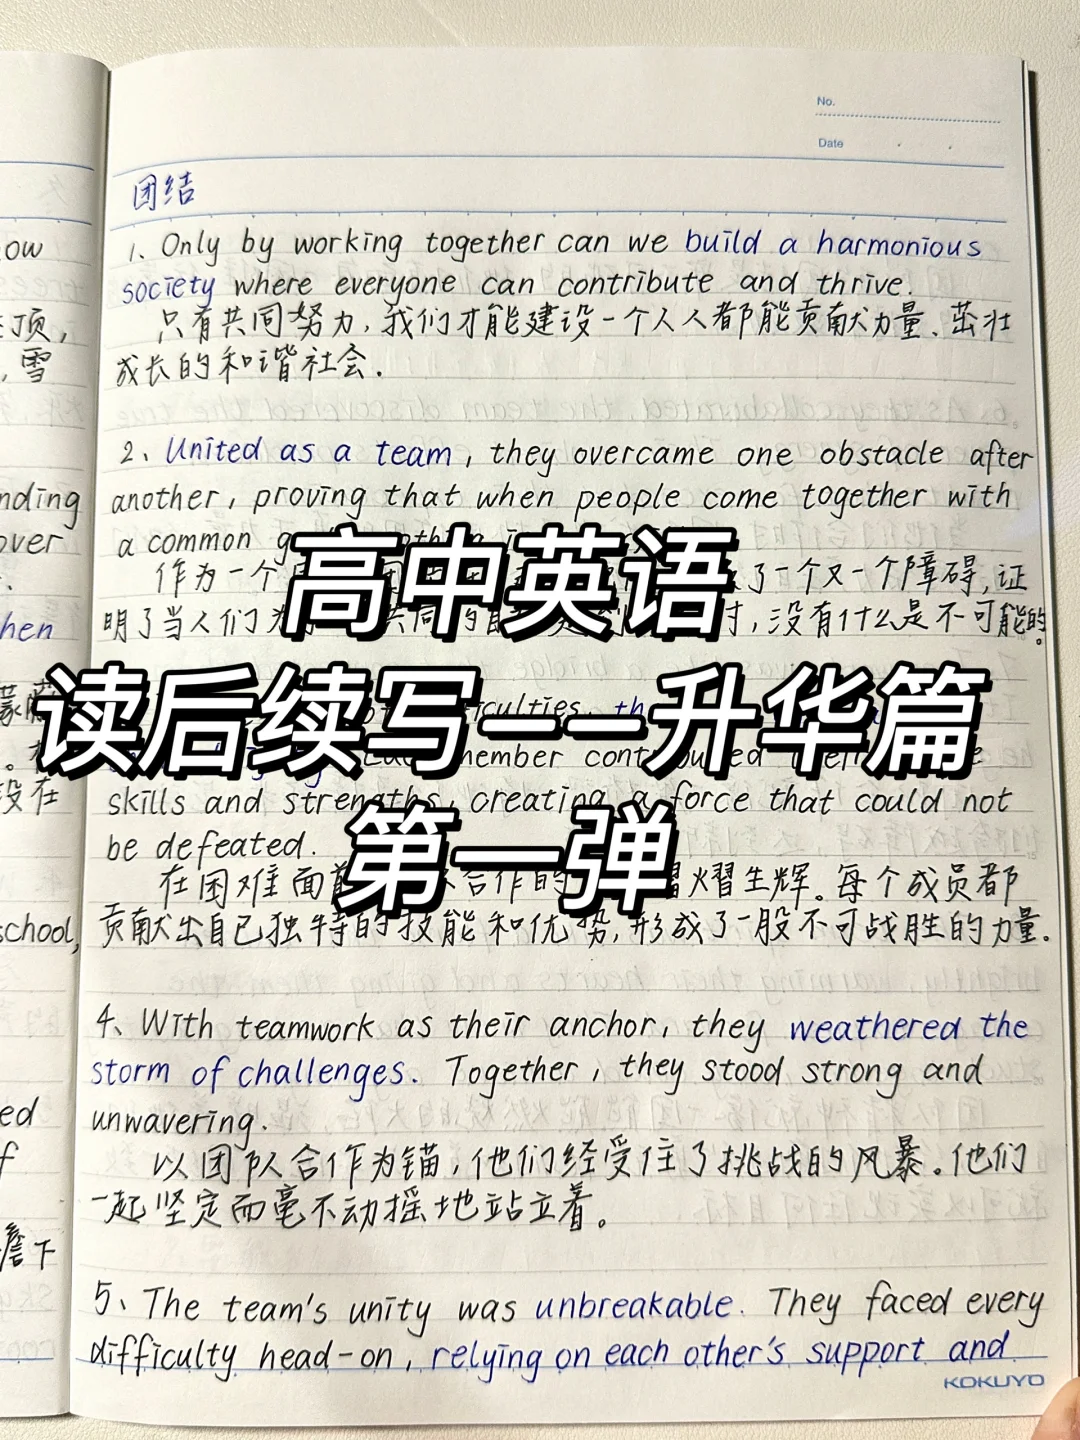 No.
Date
团结
1、Only by working together can we build a harmonious
society where everyone can contribute and thrive.
只有共同努力,我们才能建设一个人人都能贡献力量、茁壮
成长的和谐社会.
2、United as a team, they overcame one obstacle after
another, proving that when people come together with
a common
作为一个 了一个又一个障碍,证
明了当人们为 共同的目 时,没有什么是不可能的。
高中英语
读后续写——升华篇
第一弹
member
skills and strengths, creating a force that could not
be defeated.
在困难面前 合作的 熠生辉。每个成员都
贡献出自己独特的技能和优势,形成了一股不可战胜的力量.
4、With teamwork as their anchor, they weathered the
storm of challenges. Together, they stood strong and
unwavering.
以团队合作为锚,他们经受住了挑战的风暴.他们
一起坚定而毫不动摇地站立着。
5、The team's unity was unbreakable. They faced every
difficulty head-on, relying on each other's support and
KOKUYO
ow
顶,
,雪
nding
over
hen
没在
school,
ed
f
檐下